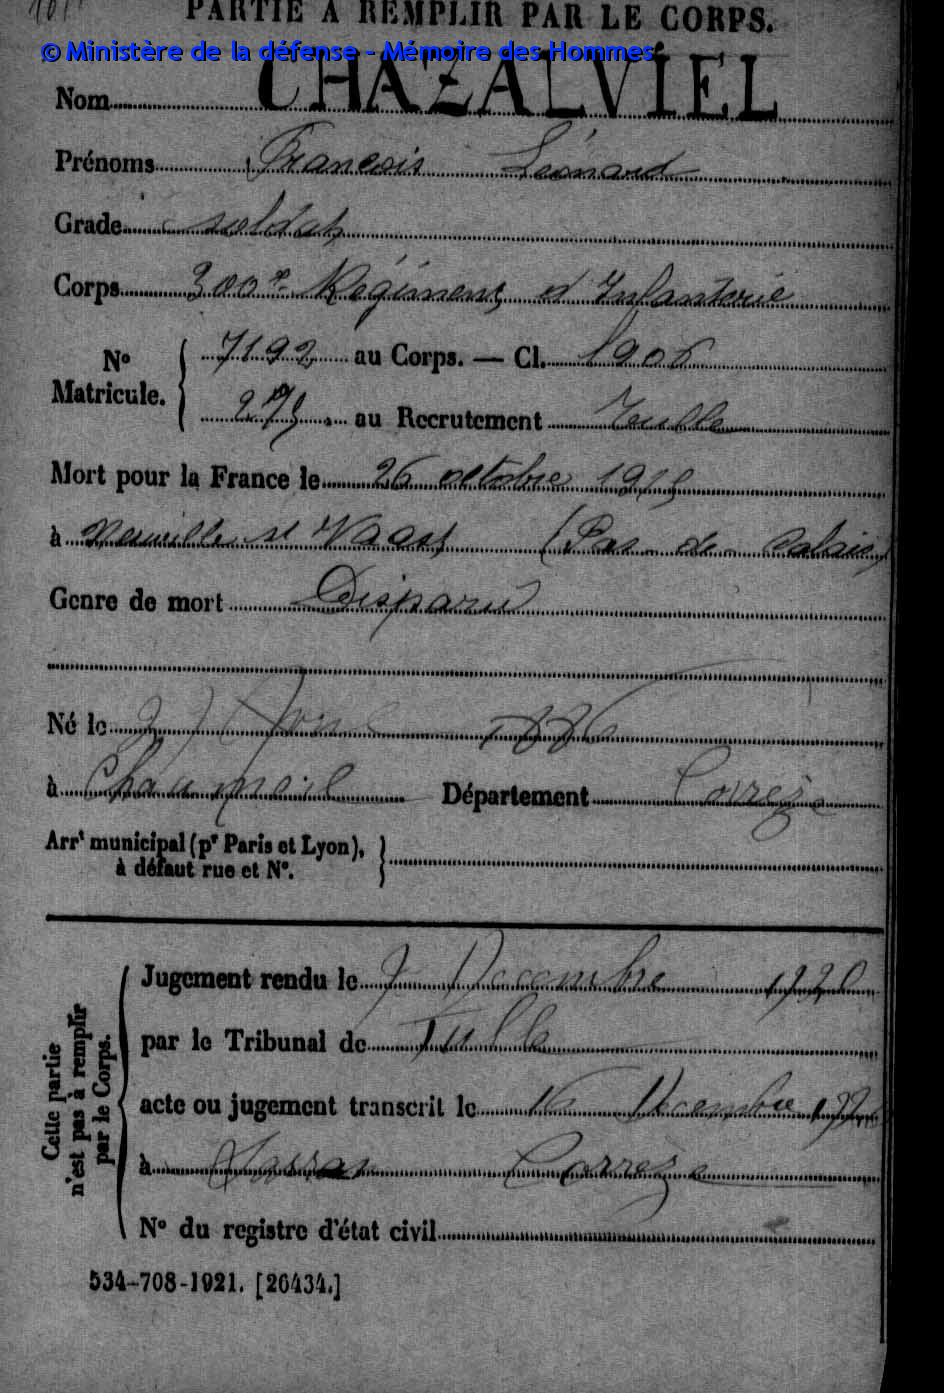 PARTIE A REMPLIR PAR LE CORPS.
© Ministère de la défense - Mémoire des Hommes
Nom CHAZALVIEL
Prénoms François Léonard
Grade soldat
Corps 300e Régiment d'Infanterie
N° Matricule. 7192 au Corps. — Cl. 1906
275 au Recrutement Tulle
Mort pour la France le 26 octobre 1915
à Neuville st Vaast (Pas-de-Calais)
Genre de mort Disparu
Né le 27 1886
à Chaumeil Département Corrèze
Arrt municipal (pr Paris et Lyon),
à défaut rue et N°.
Cette partie n'est pas à remplir par le Corps.
Jugement rendu le 7 Décembre 1920
par le Tribunal de Tulle
acte ou jugement transcrit le 16 Décembre 1920
à Sarran Corrèze
N° du registre d'état civil
534-708-1921. [26434.]